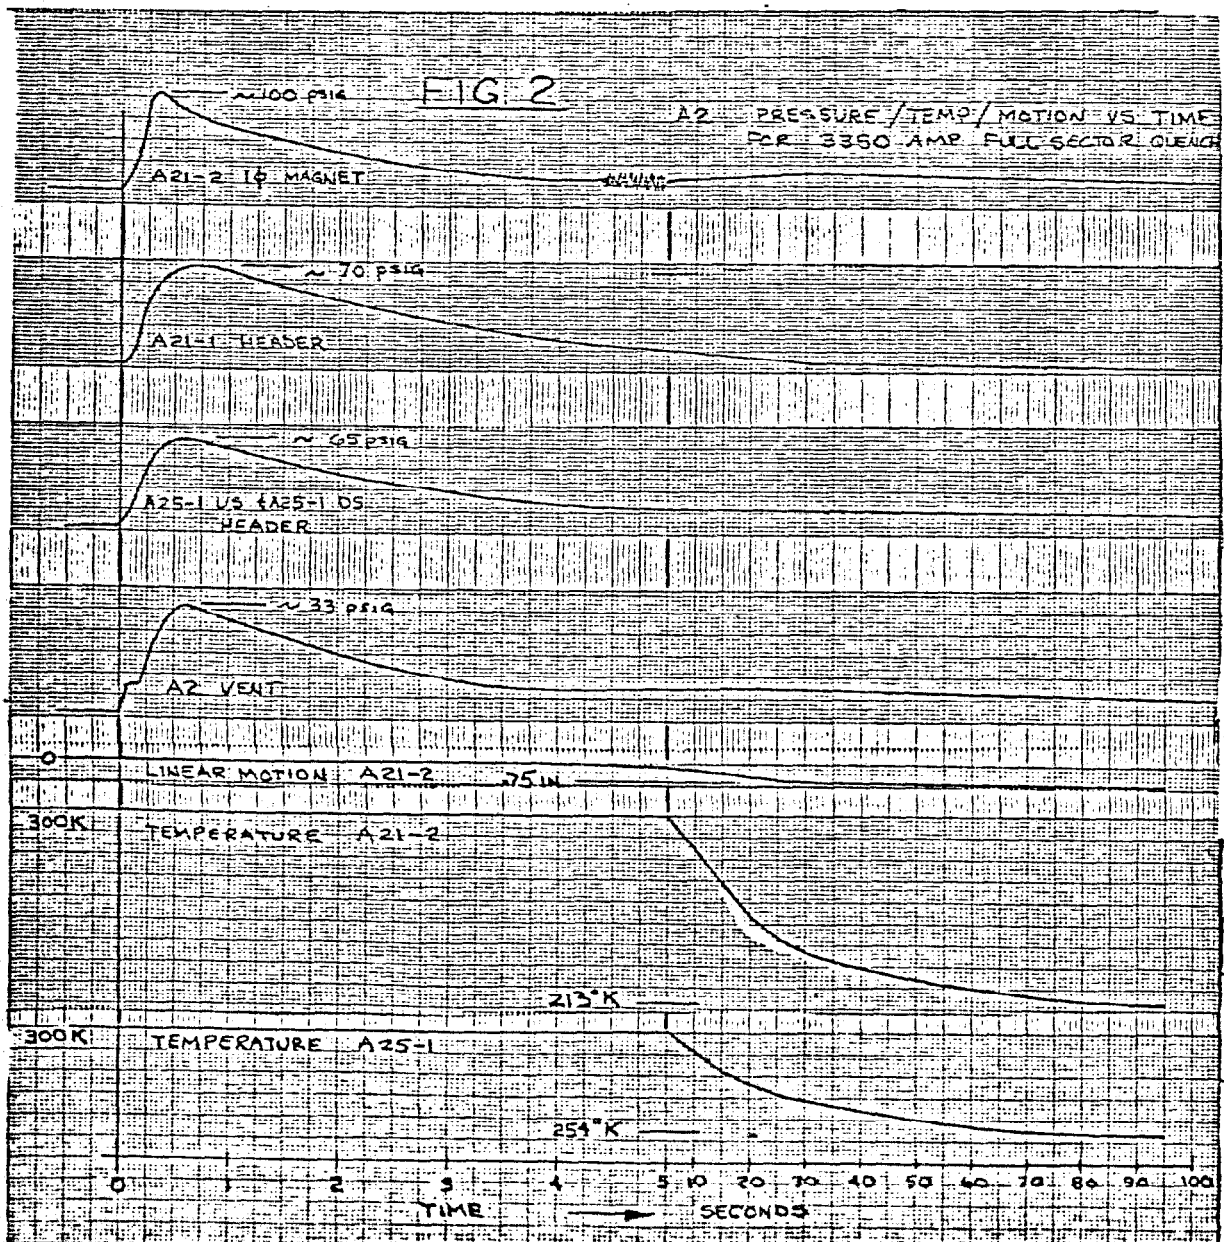 FIG. 2
~100 PSIG
A2 PRESSURE/TEMP/MOTION VS TIME
FOR 3350 AMP FULL SECTOR QUENCH
A21-2 1φ MAGNET
~ 70 PSIG
A21-1 HEADER
~ 65 PSIG
A25-1 US & A25-1 DS
HEADER
~ 33 PSIG
A2 VENT
0
LINEAR MOTION A21-2 .75 IN
300K
TEMPERATURE A21-2
213°K
300K
TEMPERATURE A25-1
254°K
0 1 2 3 4 5 10 20 30 40 50 60 70 80 90 100
TIME → SECONDS